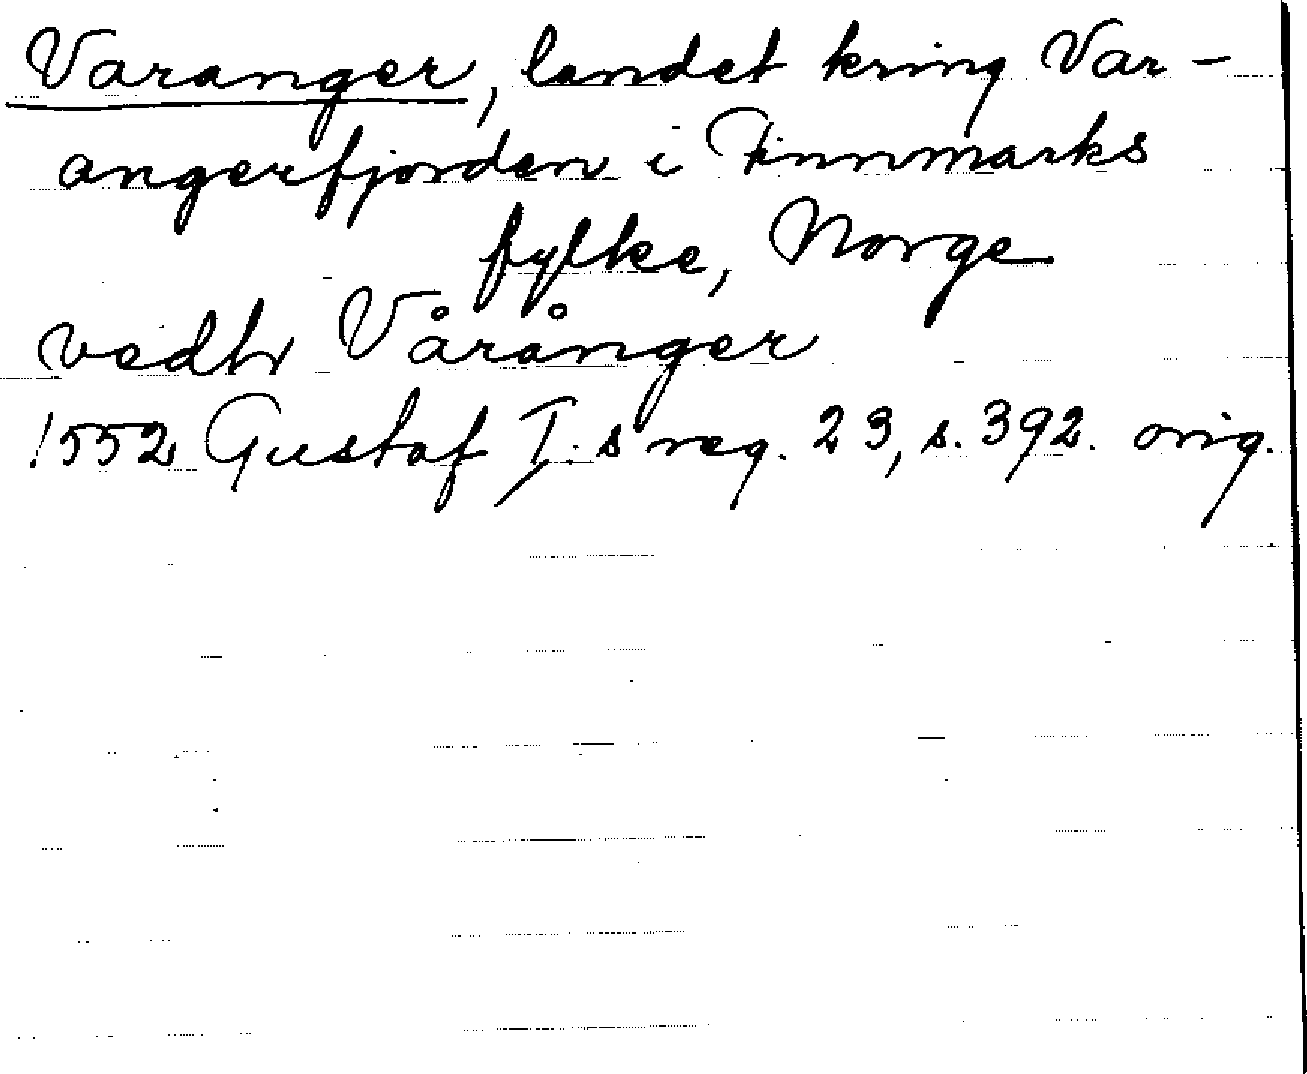 Varanger, landet kring Var-
angerfjorden i Finnmarks
fylke, Norge
vedh Vårånger
1552 Gustaf I:s reg. 23, s. 392. orig.